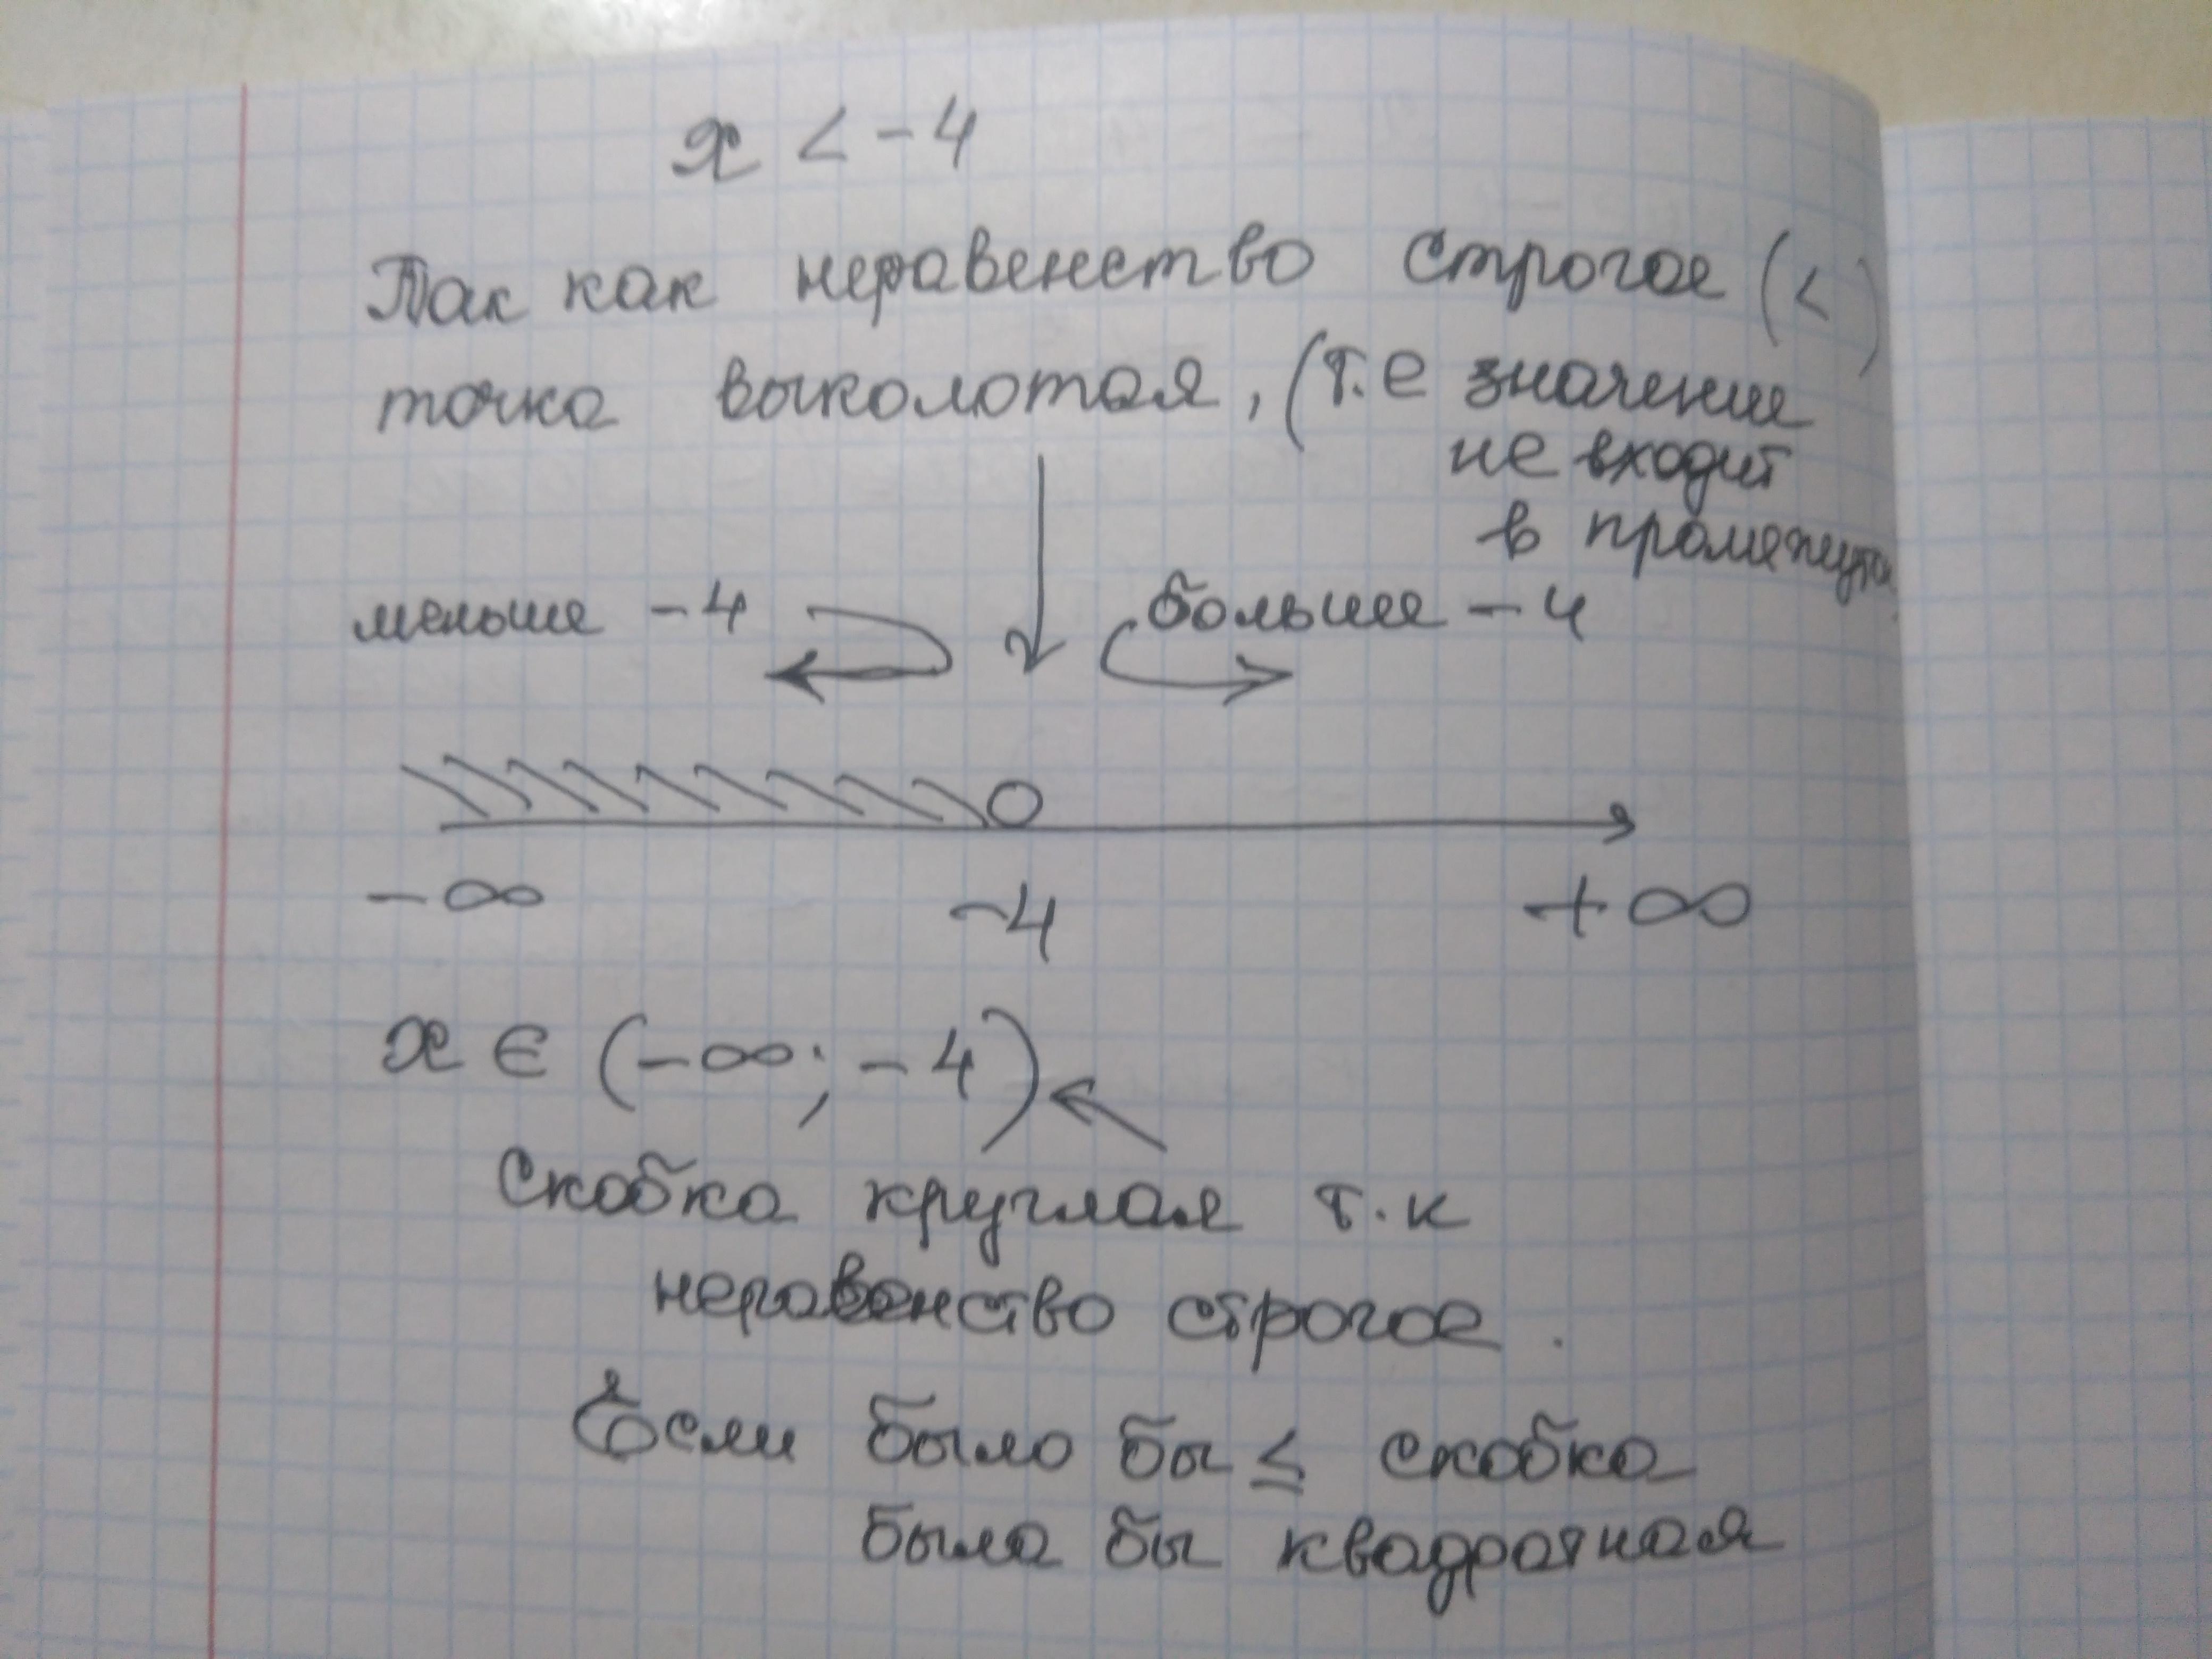 x < -4
Так как неравенство строгое (<)
точка выколотая, (т.е значение
не входит
в промежуток
меньше -4
больше -4
-∞ -4 +∞
x ∈ (-∞; -4)
Скобка круглая т.к
неравенство строгое.
Если было бы ≤ скобка
была бы квадратная